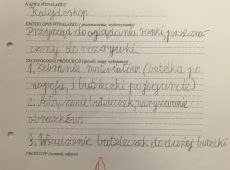 NAZWA WYNALAZKU
Kalejdoskop
KRÓTKI OPIS WYNALAZKU ( przeznaczenie, wykorzystanie)
Przyrząd do oglądania
czony do rozrywki.
TECHNOLOGIA PRODUKCJI (sposób, etapy wykonania)
1. Zebranie materiałów (butelka po
napoju, buteleczki po jogurcie).
2. buteleczek, narysowanie
obrazków.
3. Wsadzenie buteleczek do dużej butelki
PROTOTYP (rysunek, zdjęcie)